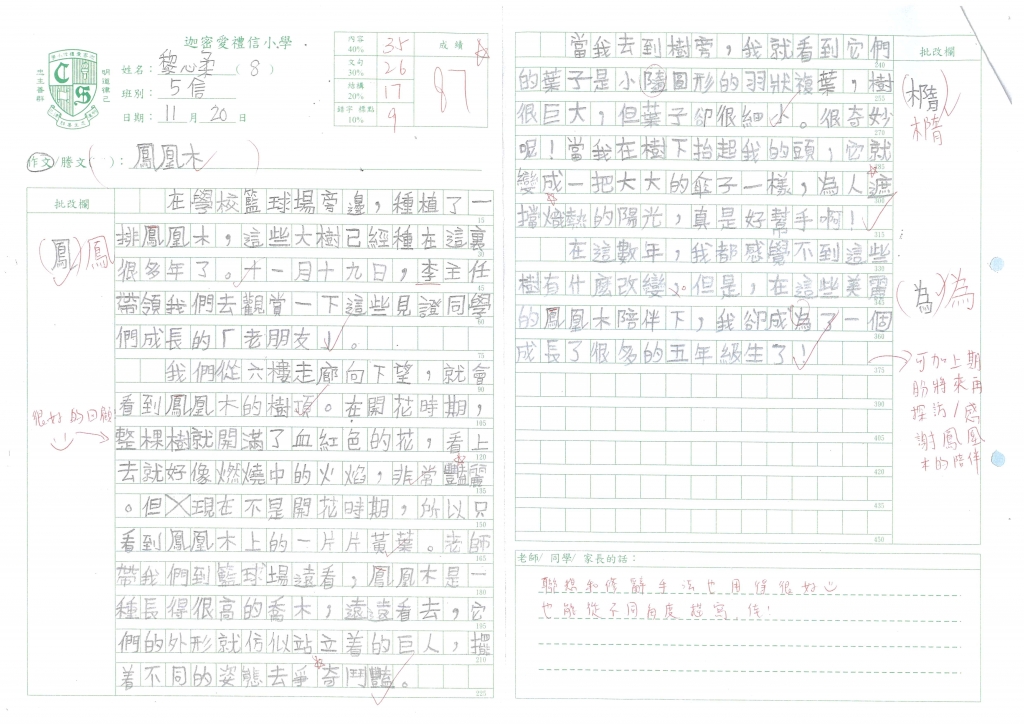 迦密愛禮信小學
明道律己
忠主善群
姓名：黎心柔（8）
班別：5信
日期：11月20日
內容 40% 35
文句 30% 26
結構 20% 17
錯字 標點 10% 9
成績
87
作文/謄文( )：鳳凰木
批改欄
在學校籃球場旁邊，種植了一
排鳳凰木，這些大樹已經種在這裏
很多年了。十一月十九日，李主任
帶領我們去觀賞一下這些見證同學
們成長的「老朋友」。
我們從六樓走廊向下望，就會
看到鳳凰木的樹頂。在開花時期，
整棵樹就開滿了血紅色的花，看上
去就好像燃燒中的火焰，非常豔麗
。但現在不是開花時期，所以只
看到鳳凰木上的一片片黃葉。老師
帶我們到籃球場遠看，鳳凰木是一
種長得很高的喬木，遠遠看去，它
們的外形就仿似站立着的巨人，擺
着不同的姿態去爭奇鬥豔。
15
30
45
60
75
90
105
120
135
150
165
180
195
210
225
(鳳)鳳
很好的回顧
當我去到樹旁，我就看到它們
的葉子是小隋圓形的羽狀複葉，樹
很巨大，但葉子卻很細小。很奇妙
呢！當我在樹下抬起我的頭，它就
變成一把大大的傘子一樣，為人遮
擋熾熱的陽光，真是好幫手啊！
在這數年，我都感覺不到這些
樹有什麼改變。但是，在這些美麗
的鳳凰木陪伴下，我卻成為了一個
成長了很多的五年級生了！
240
255
270
300
315
330
360
375
390
405
420
435
450
批改欄
(橢)
橢
(為)為
可加上期
盼將來再
探訪/感
謝鳳凰
木的陪伴
老師/ 同學/ 家長的話：
聯想和修辭手法也用得很好
也能從不同角度描寫，佳！